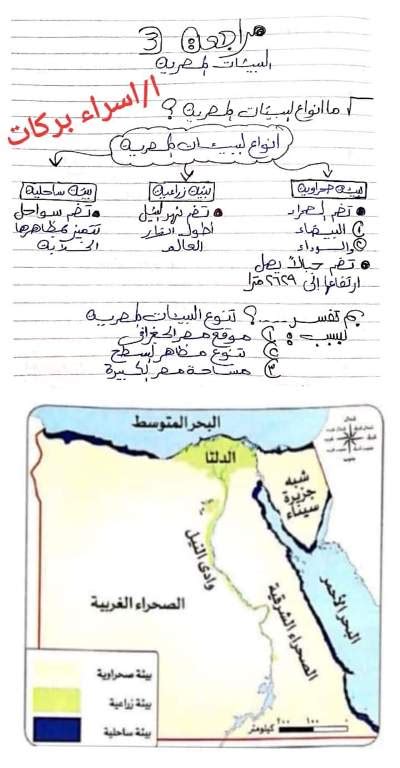 مراجعة: 3
البيئات المصرية
ا/اسراء بركات
√ ما انواع البيئات المصرية ؟
أنواع البيئات المصرية
بيئة صحراوية
بيئة زراعية
بيئة ساحلية
• تضم الصحراء
① البيضاء
② والسوداء
• تضم جبالاً يصل
ارتفاعها إلى ٢٦٢٩ مترا
• تضم نهر النيل
أطول أنهار
العالم
• تضم سواحل
تتميز بمظاهرها
الجذابة
بم تفسر ....؟ تنوع البيئات المصرية
لسبب : ① موقع مصر الجغرافي
② تنوع مظاهر السطح
③ مساحة مصر الكبيرة
البحر المتوسط
الدلتا
شبه
جزيرة
سيناء
وادى النيل
الصحراء الغربية
الصحراء الشرقية
البحر الأحمر
بيئة صحراوية
بيئة زراعية
بيئة ساحلية
٢٠٠ ١٠٠ ٠
كيلومتر